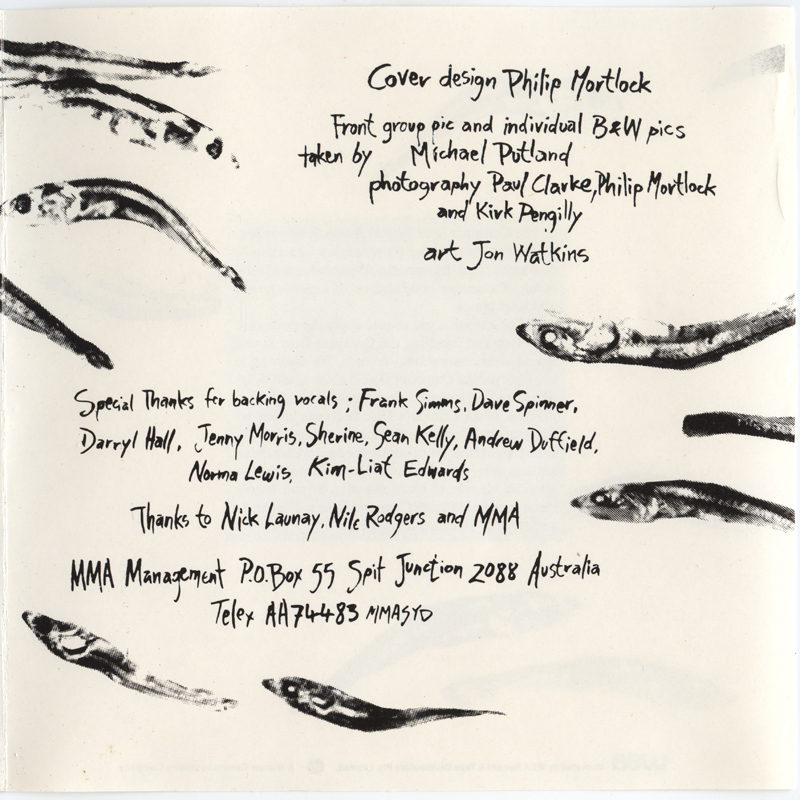 Cover design Philip Mortlock
Front group pic and individual B&W pics
taken by Michael Putland
photography Paul Clarke, Philip Mortlock
and Kirk Pengilly
art Jon Watkins
Special Thanks for backing vocals ; Frank Simms, Dave Spinner,
Darryl Hall, Jenny Morris, Sherine, Sean Kelly, Andrew Duffield,
Norma Lewis, Kim-Liat Edwards
Thanks to Nick Launay, Nile Rodgers and MMA
MMA Management P.O.Box 55 Spit Junction 2088 Australia
Telex AA74483 MMASYD